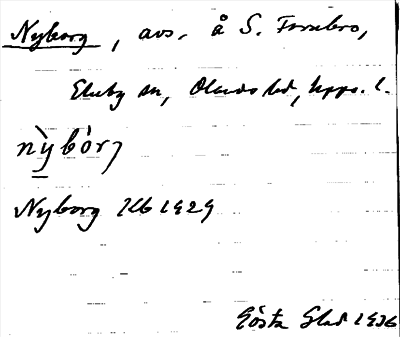 Nyborg, avs. å S. Fornbro,
Ekeby sn, Olands hd, Upps. l.
nỳbór̡
Nyborg Kb 1929
Gösta Glad 1936